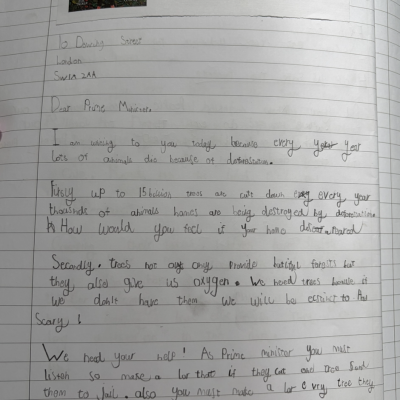 10 Downing Street
London
SW1A 2AA
Dear Prime Minister,
I am writing to you today because every year
lots of animals die because of deforestation.
Firstly up to 15 billion trees are cut down every year
thousands of animals homes are being destroyed by deforestation.
How would you feel if your home disappeared
Secondly, trees not only provide but
they also give us oxygen. We need trees if
we don't have them we will be extinct to
Scary!
We need your help! As Prime minister you must
listen so make a lar that if they cut one tree
them to Jail. also you must make a lar every tree they